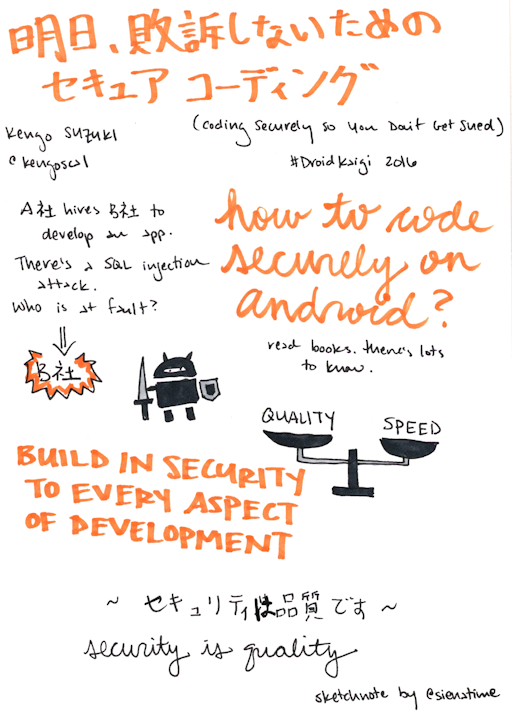 明日、敗訴しないための
セキュア コーディング
Kengo Suzuki
@kengoscal
(coding securely so you Don't Get Sued)
#DroidKaigi 2016
A社 hires B社 to
develop an app.
There's a SQL injection
attack.
Who is at fault?
B社
how to code
securely on
android?
read books. there's lots
to know.
QUALITY
SPEED
BUILD IN SECURITY
TO EVERY ASPECT
OF DEVELOPMENT
~ セキュリティは品質です ~
security is quality
sketchnote by @sienatime